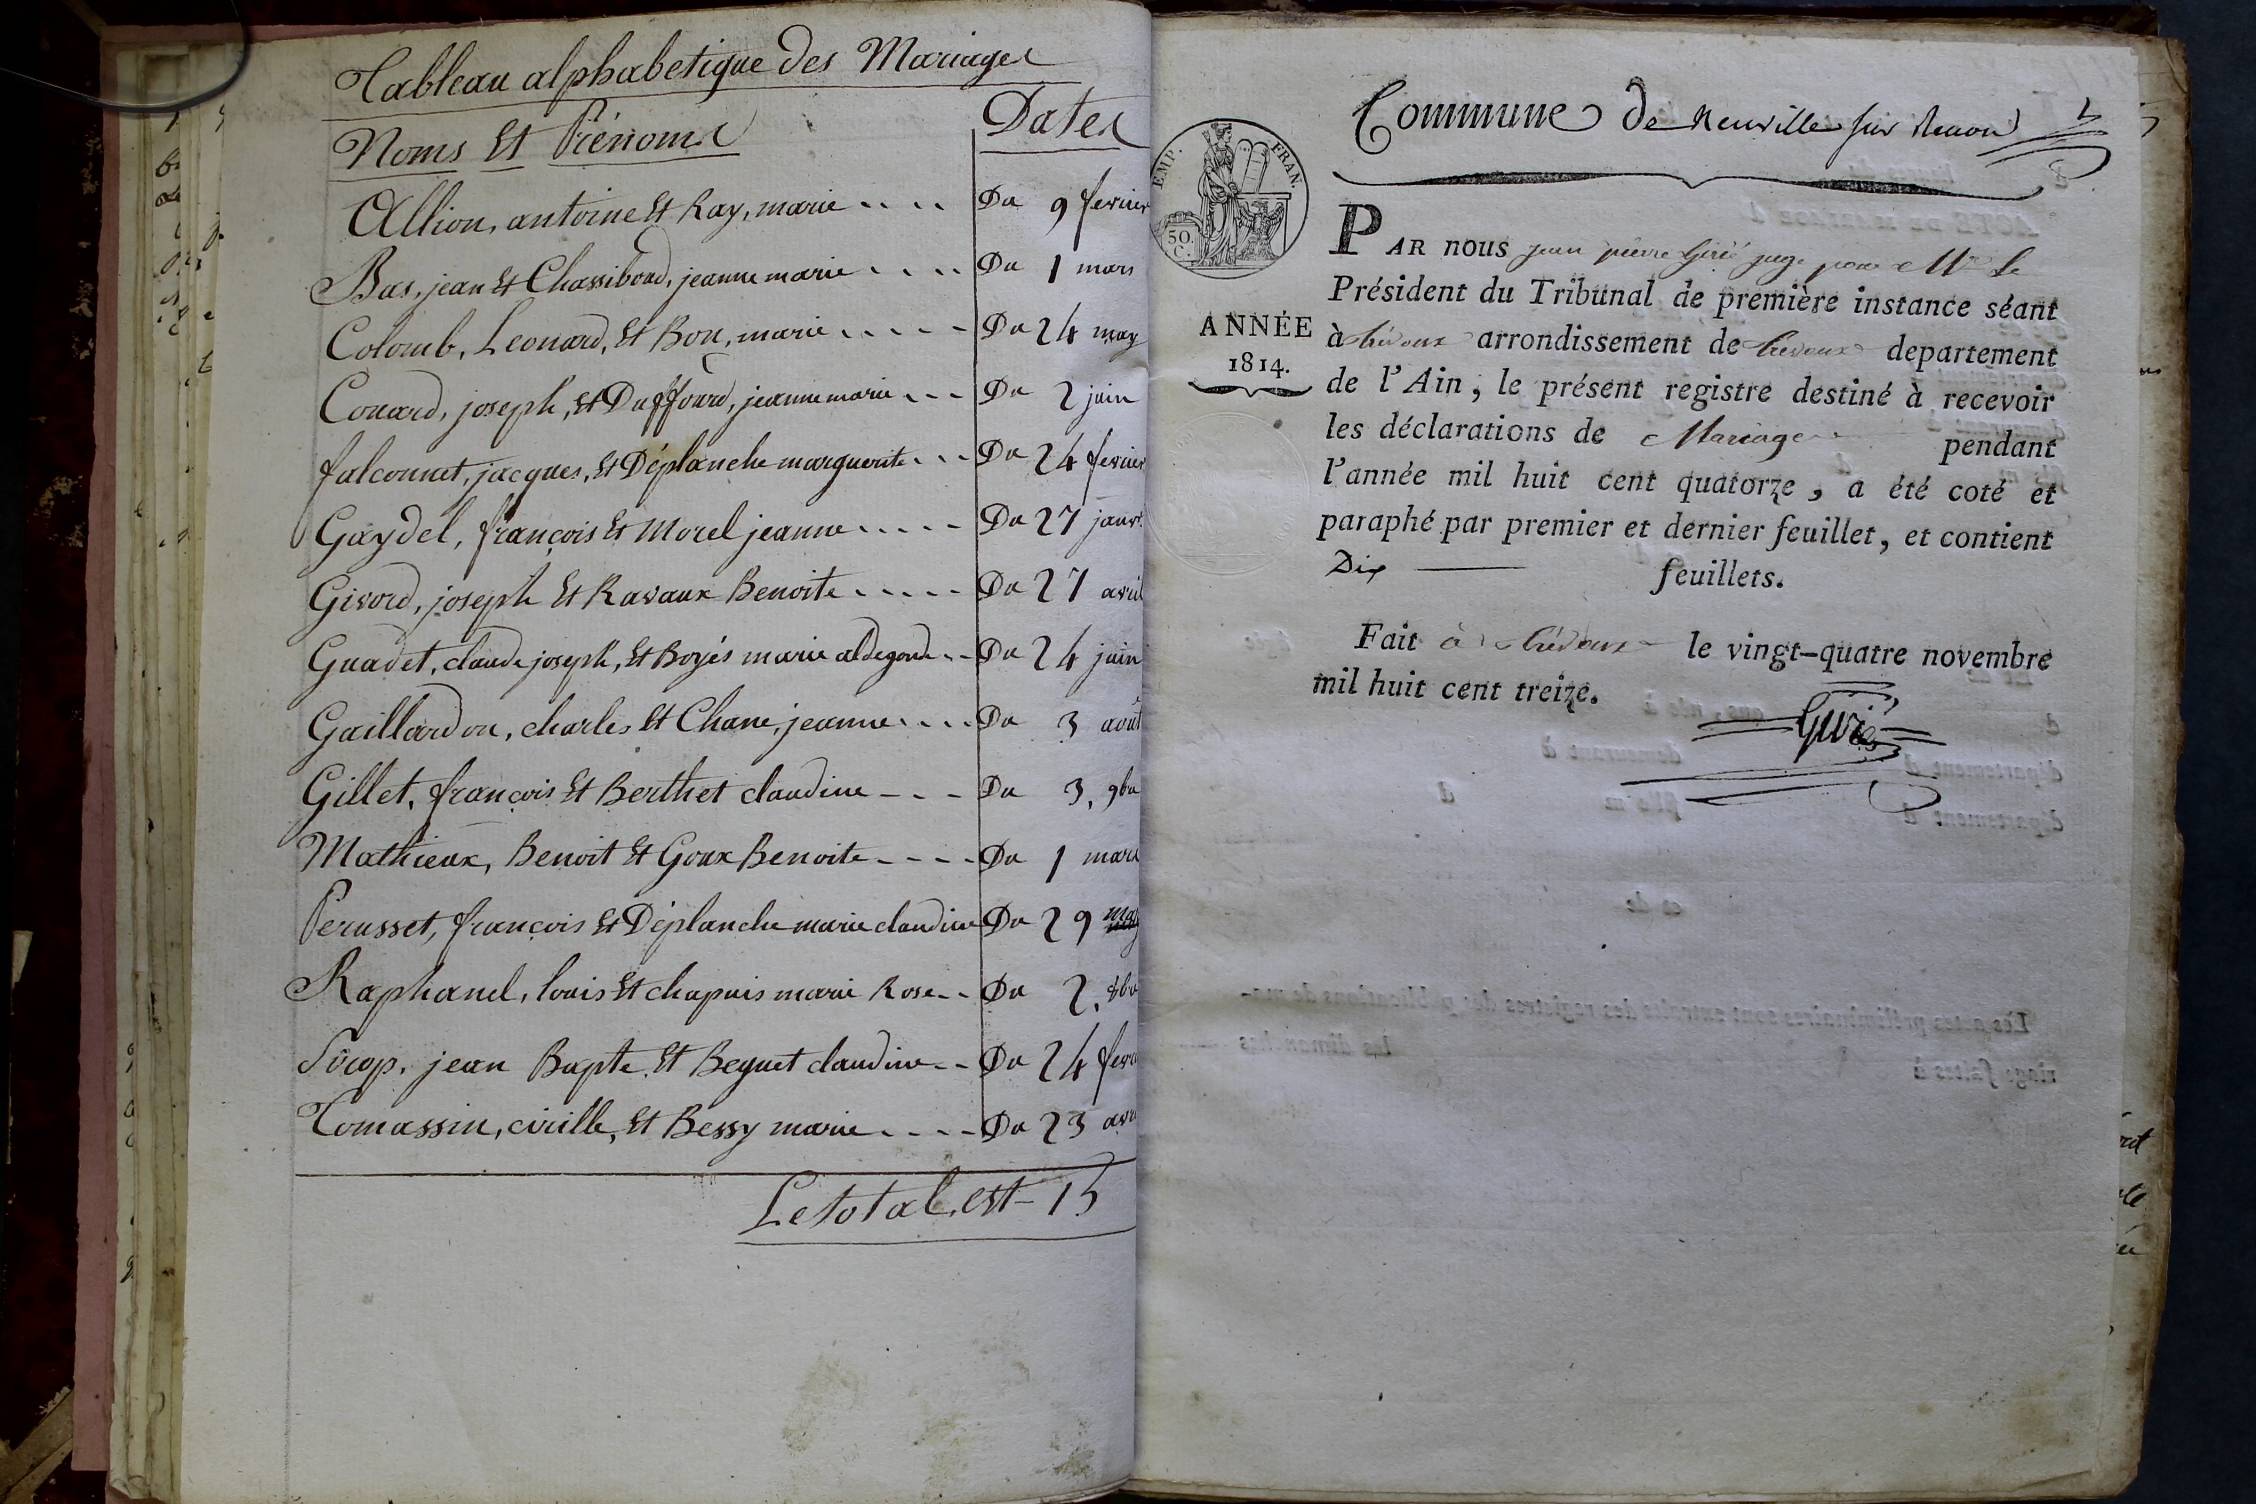 Tableau alphabetique des Mariages
Noms Et Prénoms
Dates
Allion, antoine Et Ray, marie .... Du 9 fevrier
Bas, jean Et Chassiboud, jeanne marie .... Du 1 mars
Colomb, Leonard, Et Bon, marie ..... Du 24 may
Couard, joseph, Et Duffourd, jeanne marie ... Du 2 juin
falconnet, jacques, Et Déplanche marguerite ... Du 24 fevrier
Gaydel, françois Et Morel jeanne ..... Du 27 janvr.
Givord, joseph Et Ravaux Benoite ..... Du 27 avril
Guadet, claude joseph, Et Boyés marie aldegonde .. Du 24 juin
Gaillardon, charles Et Chane, jeanne .... Du 3 août
Gillet, françois Et Berthet claudine - . - Du 3, 9bre
Mathieux, Benoit Et Goux Benoite .... Du 1 mars
Perusset, françois Et Déplanche marie claudine Du 29 may
Raphanel, louis Et chapuis marie Rose .. Du 2, 8bre
Sirop, jean Bapte. Et Beguet claudine .. Du 24 fevr
Tomassin, cirille, Et Bessy marie .... Du 23 avri
Le total est - 15
Commune de Neuville sur Renon
EMP. FRAN.
50. C.
ANNÉE
1814.
PAR nous jean pierre Girié juge pour Mr le
Président du Tribunal de première instance séant
à trévoux arrondissement de trevoux departement
de l'Ain, le présent registre destiné à recevoir
les déclarations de Mariage pendant
l'année mil huit cent quatorze, a été coté et
paraphé par premier et dernier feuillet, et contient
Dix feuillets.
Fait à trévoux le vingt-quatre novembre
mil huit cent treize.
Girié